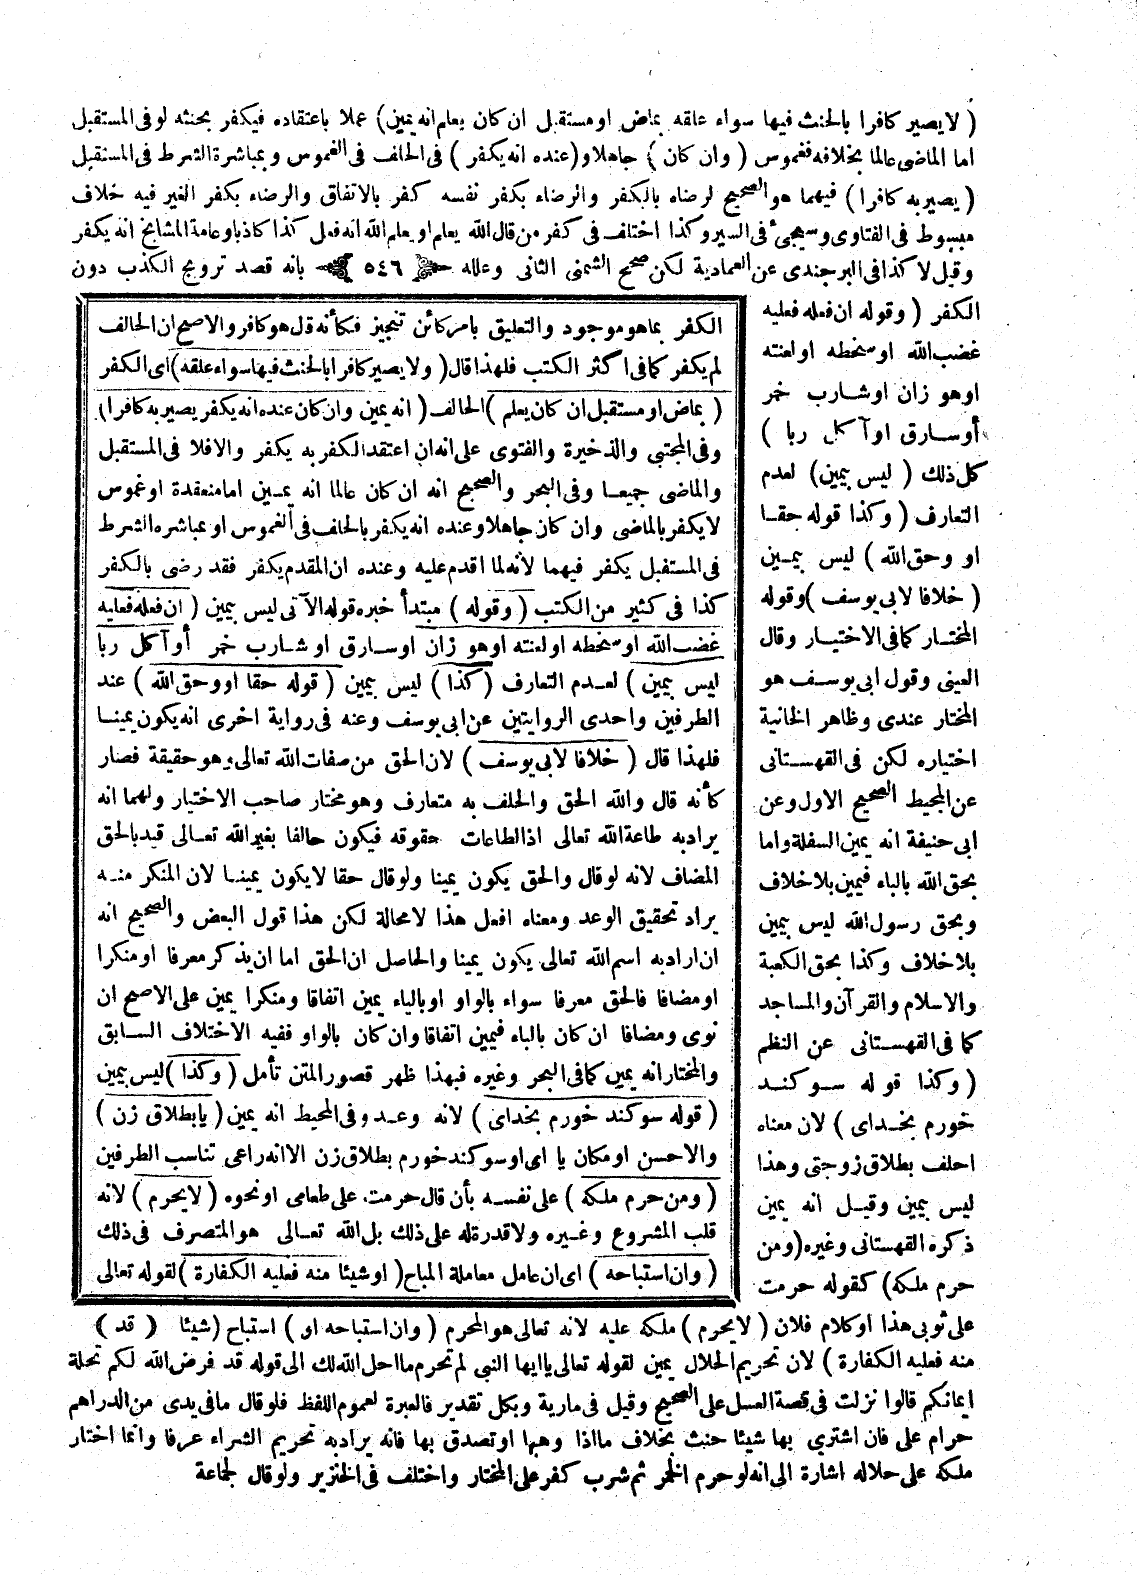 ( لا يصير كافرا بالحنث فيها سواء علقه بماض او مستقبل ان كان يعلم انه يمين) عملا باعتقاده فيكفر بحنثه لو فى المستقبل
اما الماضى عالما بخلافه فغموس ( وان كان ) جاهلا و(عنده انه يكفر ) فى الحلف فى الغموس و بمباشرة الشرط فى المستقبل
( يصير به كافرا ) فيهما هو الصحيح لرضاه بالكفر والرضاء بكفر نفسه كفر بالاتفاق والرضاء بكفر الغير فيه خلاف
مبسوط فى الفتاوى وسيجئ فى السير وكذا اختلف فى كفر من قال الله يعلم او يعلم الله انه فعل كذا كاذبا وعامة المشايخ انه يكفر
وقيل لا كذا فى البرجندى عن العمادية لكن صحح الشمنى الثانى وعلله ﴿ ٥٤٦ ﴾ بانه قصد ترويج الكذب دون
الكفر ( وقوله ان فعله فعليه
غضب الله او سخطه او لعنته
او هو زان او شارب خمر
أو سارق او آكل ربا )
كل ذلك ( ليس بيمين) لعدم
التعارف ( وكذا قوله حقا
او وحق الله ) ليس بيمين
( خلافا لابى يوسف )وقوله
المختار كما فى الاختيار وقال
العينى وقول ابى يوسف هو
المختار عندى وظاهر الخانية
اختياره لكن فى القهستانى
عن المحيط الصحيح الاول وعن
ابى حنيفة انه يمين السفلة واما
بحق الله بالباء فيمين بلا خلاف
وبحق رسول الله ليس بيمين
بلا خلاف وكذا بحق الكعبة
والاسلام والقرآن والمساجد
كما فى القهستانى عن النظم
( وكذا قوله سوكند
خورم بخداى ) لان معناه
احلف بطلاق زوجتى وهذا
ليس بيمين وقيل انه يمين
ذكره القهستانى وغيره (ومن
حرم ملكه) كقوله حرمت
الكفر بما هو موجود والتعليق بامر كائن تنجيز فكأنه قال هو كافر والاصح ان الحالف
لم يكفر كما فى اكثر الكتب فلهذا قال ( ولا يصير كافرا بالحنث فيها سواء علقه ) اى الكفر
( بماض او مستقبل ان كان يعلم ) الحالف ( انه يمين وان كان عنده انه يكفر يصير به كافرا )
وفى المجتبى والذخيرة والفتوى على انه ان اعتقد الكفر به يكفر والا فلا فى المستقبل
والماضى جميعا وفى البحر والصحيح انه ان كان عالما انه يمين اما منعقدة او غموس
لا يكفر بالماضى وان كان جاهلا وعنده انه يكفر بالحلف فى الغموس او بمباشره الشرط
فى المستقبل يكفر فيهما لأنه لما اقدم عليه وعنده ان المقدم يكفر فقد رضى بالكفر
كذا فى كثير من الكتب ( وقوله ) مبتدأ خبره قوله الآتى ليس بيمين ( ان فعله فعليه
غضب الله او سخطه او لعنته او هو زان او سارق او شارب خمر أو آكل ربا
ليس بيمين ) لعدم التعارف (كذا ) ليس بيمين ( قوله حقا او وحق الله ) عند
الطرفين واحدى الروايتين عن ابى يوسف وعنه فى رواية اخرى انه يكون يمينا
فلهذا قال ( خلافا لابى يوسف ) لان الحق من صفات الله تعالى وهو حقيقة فصار
كأنه قال والله الحق والحلف به متعارف وهو مختار صاحب الاختيار ولهما انه
يراد به طاعة الله تعالى اذ الطاعات حقوقه فيكون حالفا بغير الله تعالى قيد بالحق
المضاف لانه لو قال والحق يكون يمينا ولو قال حقا لا يكون يمينا لان المنكر منه
يراد تحقيق الوعد ومعناه افعل هذا لا محالة لكن هذا قول البعض والصحيح انه
ان اراد به اسم الله تعالى يكون يمينا والحاصل ان الحق اما ان يذكر معرفا او منكرا
او مضافا فالحق معرفا سواء بالواو او بالباء يمين اتفاقا ومنكرا يمين على الاصح ان
نوى ومضافا ان كان بالباء فيمين اتفاقا وان كان بالواو ففيه الاختلاف السابق
والمختار انه يمين كما فى البحر وغيره فبهذا ظهر قصور المتن تأمل ( وكذا ) ليس بيمين
( قوله سوكند خورم بخداى ) لانه وعد وفى المحيط انه يمين ( يا بطلاق زن )
والاحسن او مكان يا اى او سوكند خورم بطلاق زن الا انه راعى تناسب الطرفين
( ومن حرم ملكه ) على نفسه بأن قال حرمت على طعامى او نحوه ( لا يحرم ) لانه
قلب المشروع وغيره ولا قدرة له على ذلك بل الله تعالى هو المتصرف فى ذلك
( وان استباحه ) اى ان عامل معاملة المباح ( او شيئا منه فعليه الكفارة ) لقوله تعالى
على ثوبى هذا او كلام فلان ( لا يحرم ) ملكه عليه لانه تعالى هو المحرم ( وان استباحه او ) استباح (شيئا ﴿ قد ﴾
منه فعليه الكفارة ) لان تحريم الحلال يمين لقوله تعالى يا ايها النبى لم تحرم ما احل الله لك الى قوله قد فرض الله لكم تحلة
ايمانكم قالوا نزلت فى قصة العسل على الصحيح وقيل فى مارية وبكل تقدير فالعبرة لعموم اللفظ فلو قال ما فى يدى من الدراهم
حرام على فان اشترى بها شيئا حنث بخلاف ما اذا وهبها او تصدق بها فانه يراد به تحريم الشراء عرفا وانما اختار
ملكه على حلاله اشارة الى انه لو حرم الخمر ثم شرب كفر على المختار واختلف فى الخنزير ولو قال لجماعة